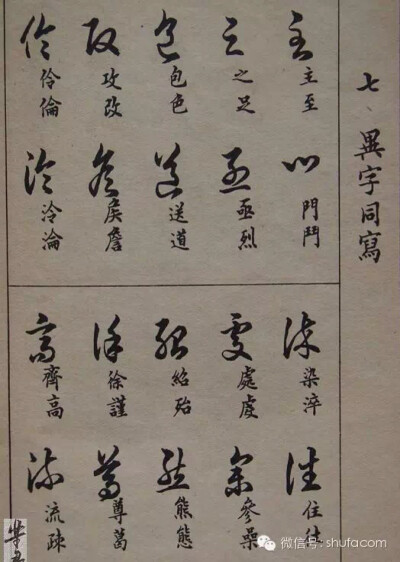 七、異字同寫
主至
之足
包色
攻改
伶倫
門鬥
亟烈
送道
侯詹
泠淪
染淬
處虔
紹殆
徐謹
齊高
住往
參喿
熊態
尊葛
流疎
微信号: shufa.com